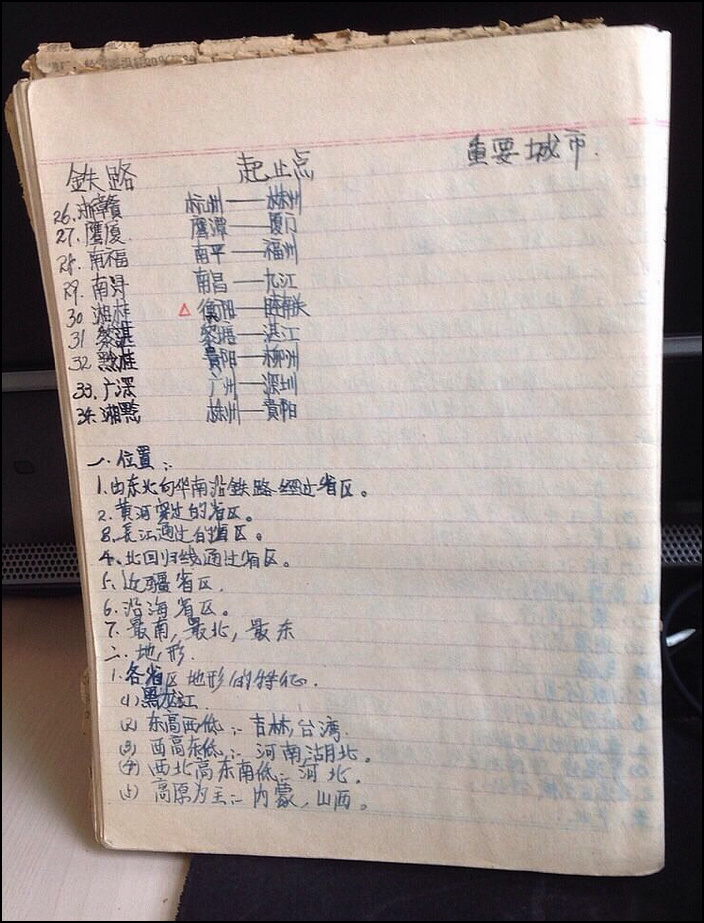 鉄路 起止点 重要城市.
26.浙赣 杭州——株州
27.鷹厦 鷹潭——厦门
28.南福 南平——福州
29.南浔 南昌——九江
30湘桂 △ 衡阳——睦南关
31黎湛 黎塘——湛江
32黔桂 貴阳——柳州
33.广深 广州——深圳
34.湘黔 株州——貴阳
一.位置：
1.由东北向华南沿鉄路经过省区。
2.黄河穿过的省区。
3.長江通过的省区。
4.北回归线通过省区。
5.近疆省区.
6.沿海省区。
7.最南,最北,最东
二.地形.
1.各省区地形的特征.
(1)黑龙江.
(2)东高西低：吉林,台湾.
(3)西高东低：河南,湖北。
(4)西北高东南低：河北.
(5)高原为主：内蒙,山西。